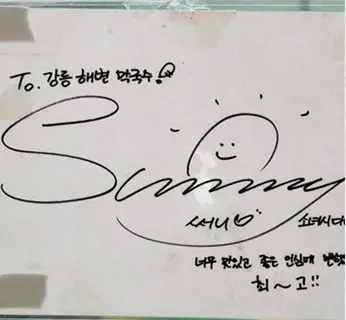 To. 강릉 해변 막국수!
Sunny
써니 소녀시대
너무 맛있고 좋은 인심에 반했
최~고!!